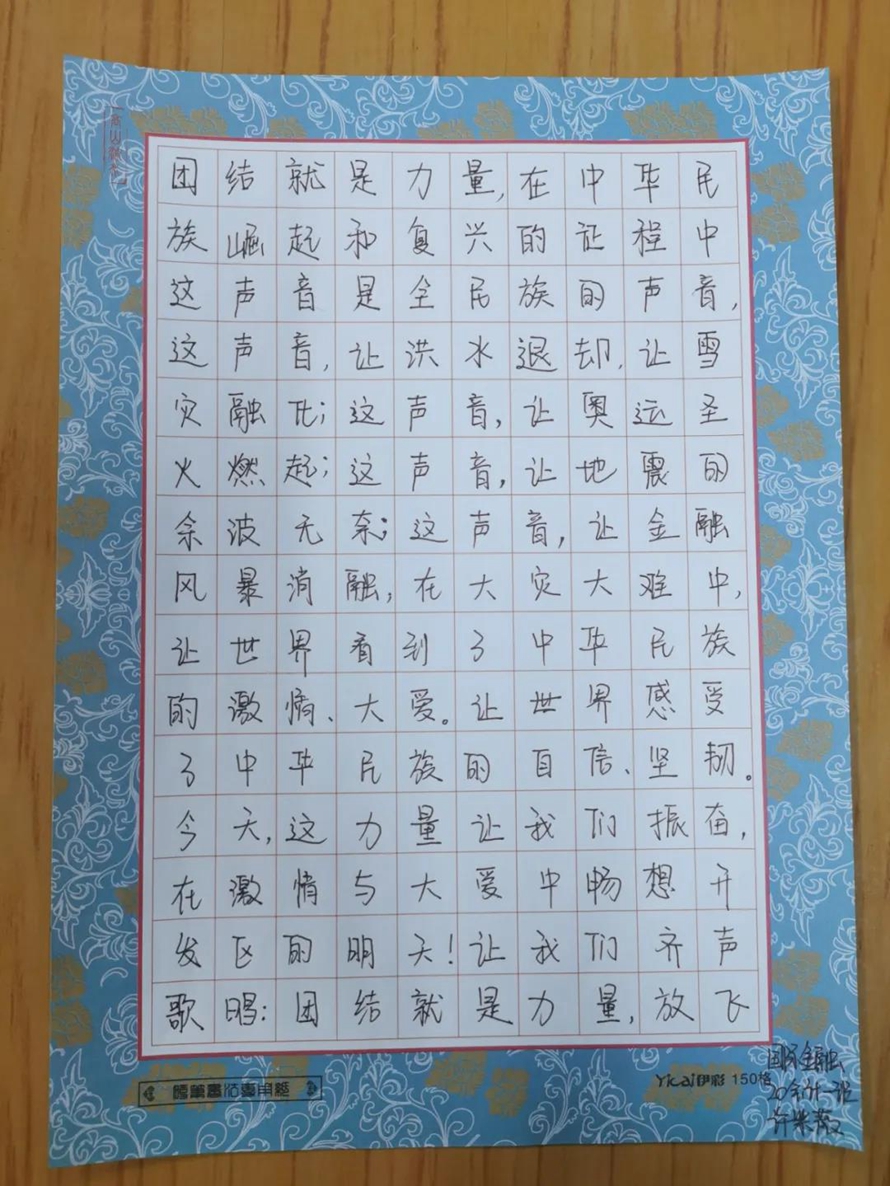 团结就是力量,在中华民
族崛起和复兴的征程中
这声音是全民族的声音,
这声音,让洪水退却,让雪
灾融化;这声音,让奥运圣
火燃起;这声音,让地震的
余波无奈;这声音,让金融
风暴消融,在大灾大难中,
让世界看到了中华民族
的激情、大爱。让世界感受
了中华民族的自信、坚韧。
今天,这力量让我们振奋,
在激情与大爱中畅想开
发区的明天!让我们齐声
歌唱:团结就是力量,放飞
硬筆書法專用紙
Yicai伊彩 150格
国际金融
20会计一班
许